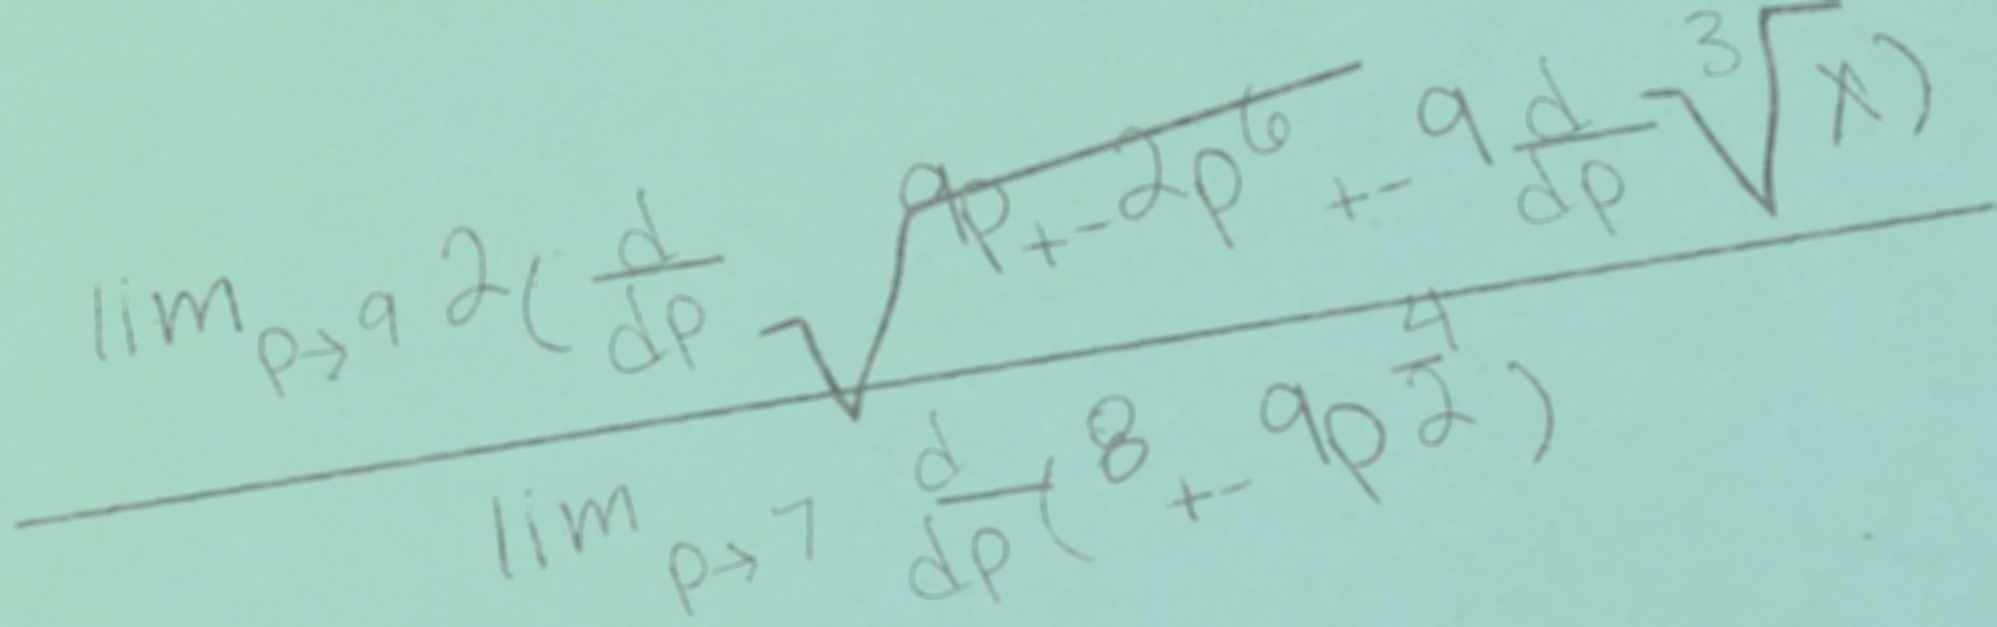 \frac{\lim_{p \to 9} 2(\frac{d}{dp} \sqrt{9p + -2p^6} + -9 \frac{d}{dp} \sqrt[3]{x})}{\lim_{p \to 7} \frac{d}{dp}(8 + -9p^{\frac{4}{2}})}